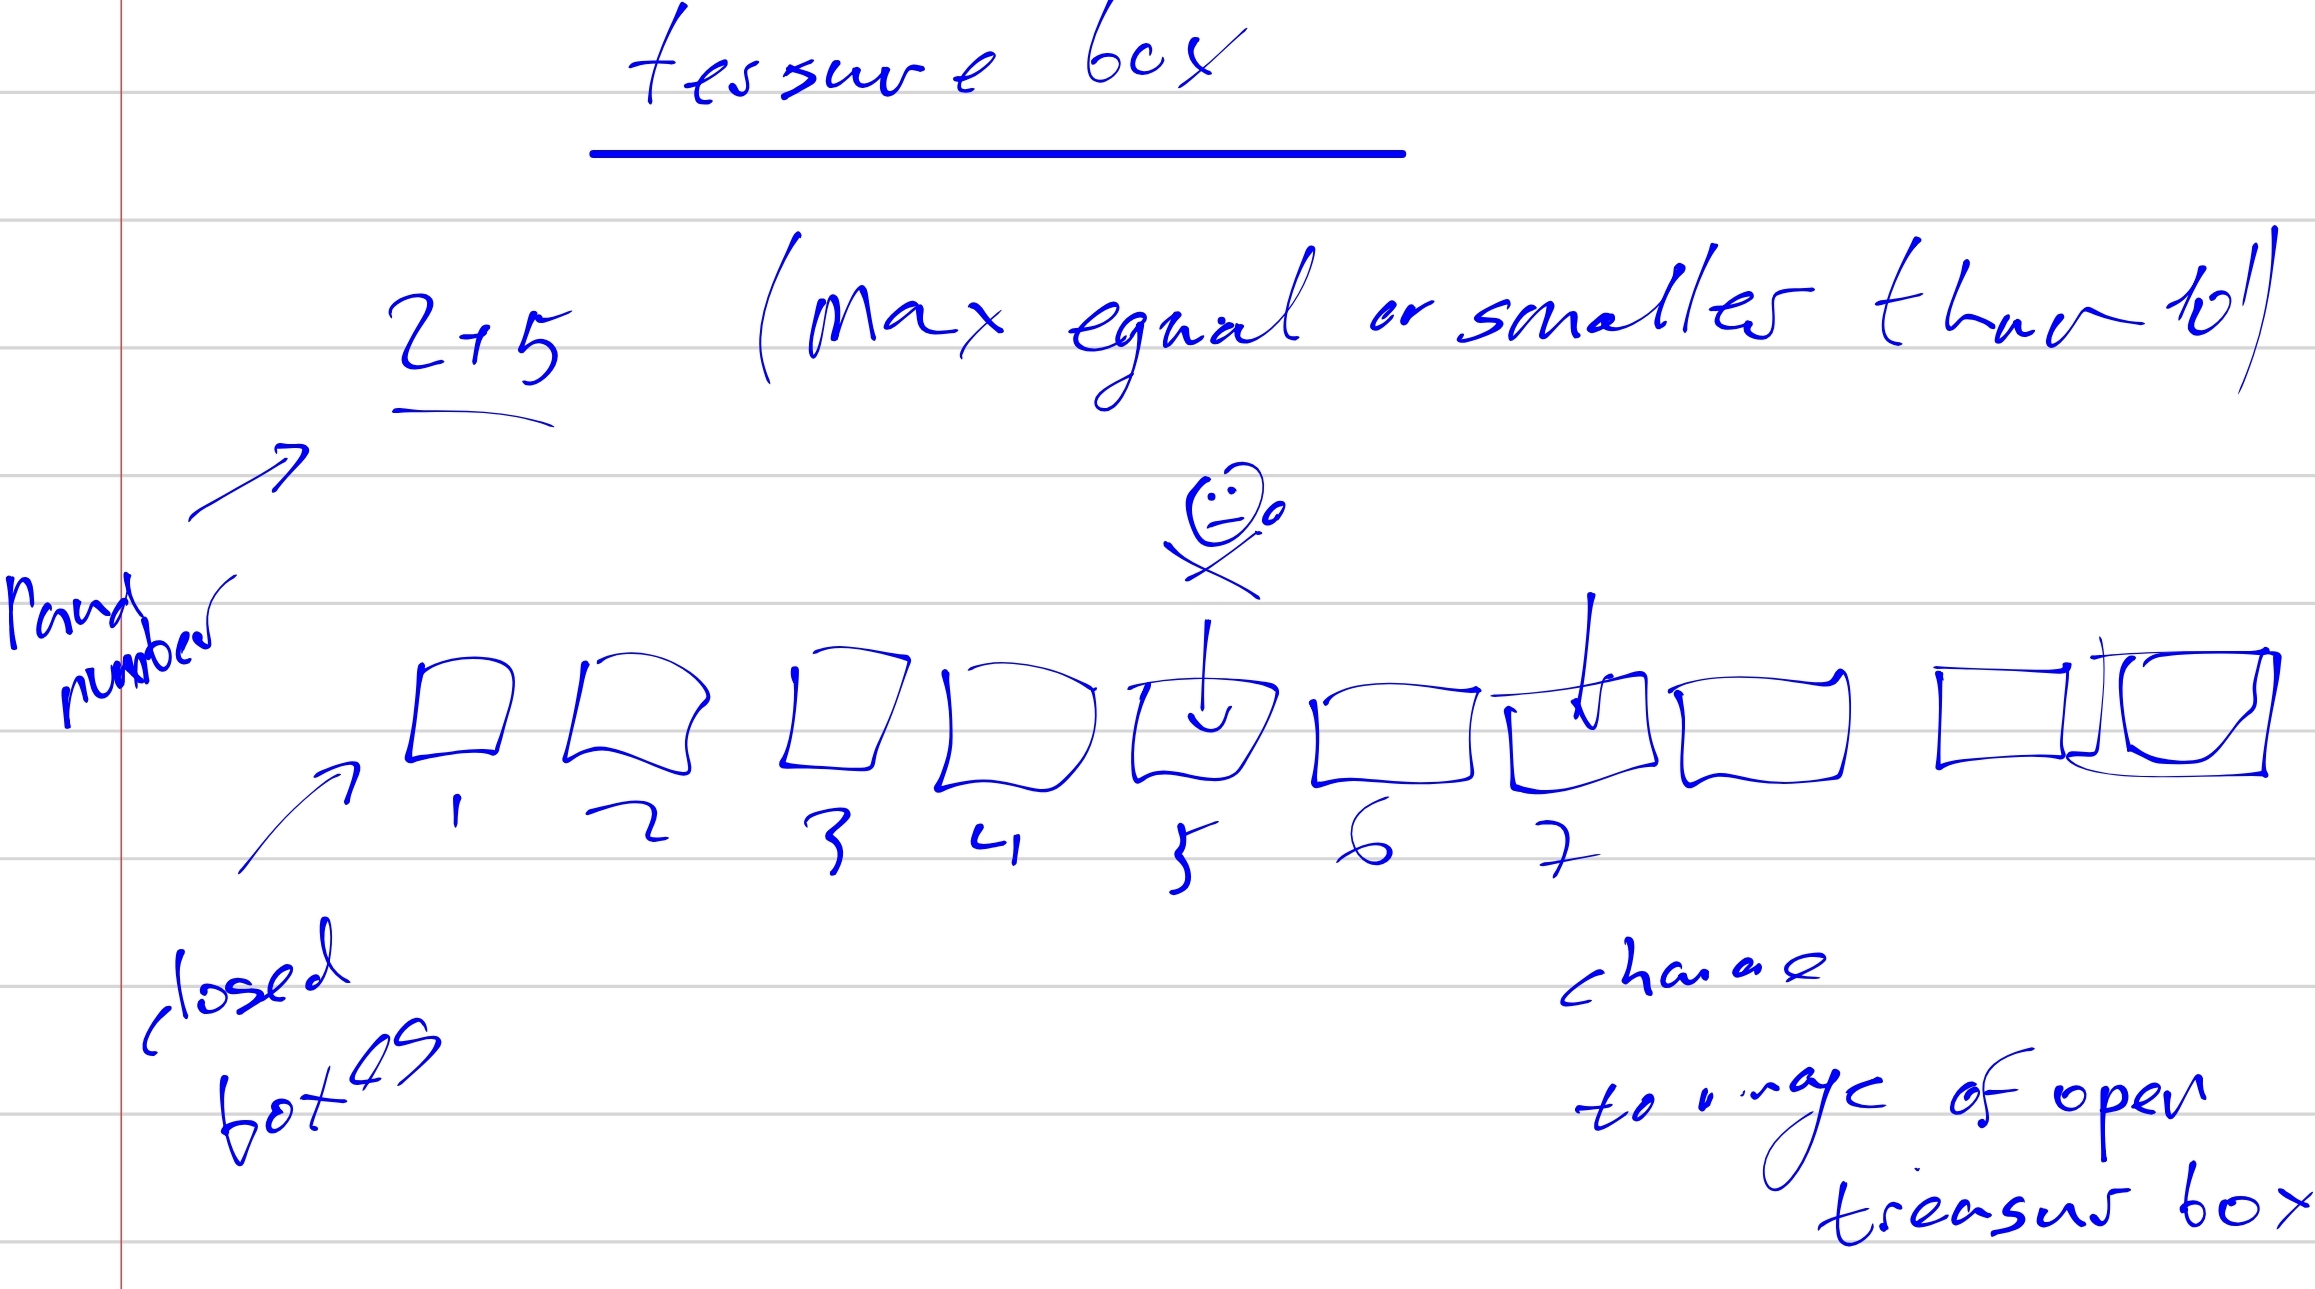 tessure box
2+5 (Max equal or smaller than 10)
Rand
number
1 2 3 4 5 6 7
closed
boxes
change
to image of open
treasur box